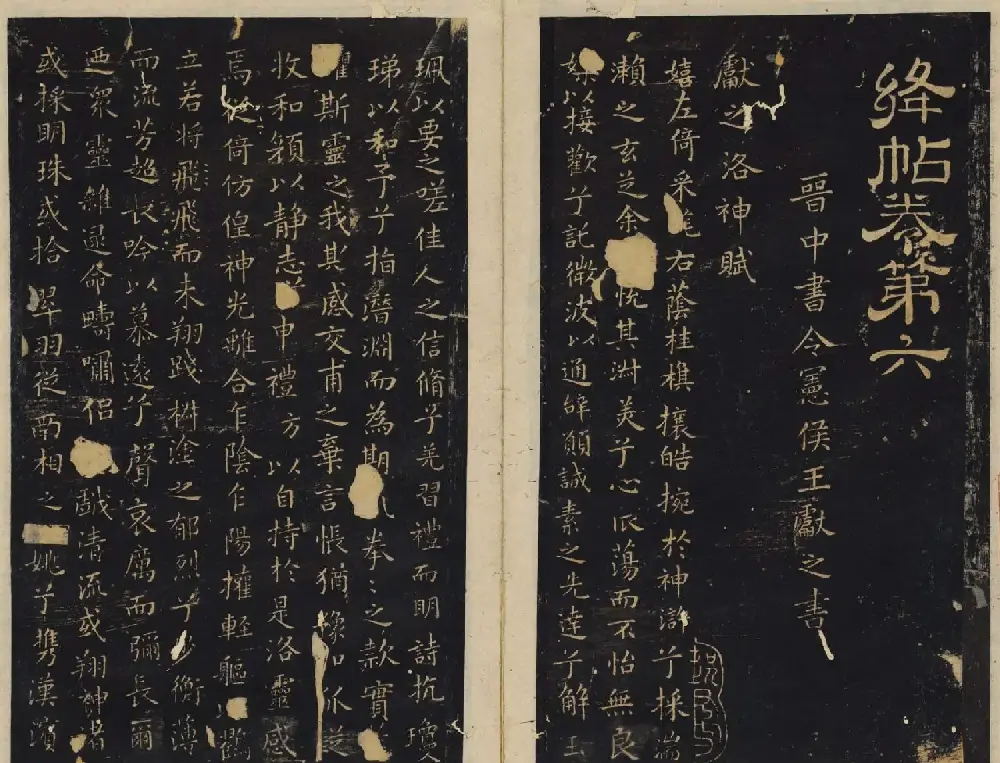 絳帖卷第六
晉中書令憲侯王獻之書
獻之洛神賦
嬉左倚采旄右蔭桂旗攘皓捥於神滸兮採湍
瀨之玄芝余悅其淑美兮心振蕩而不怡無良
以接歡兮託微波以通辝願誠素之先達兮解玉
珮以要之嗟佳人之信脩兮羌習禮而明詩抗瓊
珶以和予兮指潛淵而為期拳〻之款實
懼斯靈之我其感交甫之棄言悵猶豫狐疑
收和顏以静志申禮方以自持於是洛靈感
焉徙倚仿偟神光離合乍陰乍陽擢輕軀以鶴
立若將飛飛而未翔踐椒塗之郁烈兮步衡薄
而流芳超長吟以慕遠兮聲哀厲而彌長爾
迺衆靈雜遝命疇嘯侶戲清流或翔神渚
或採明珠或拾翠羽從南湘之姚兮攜漢濱